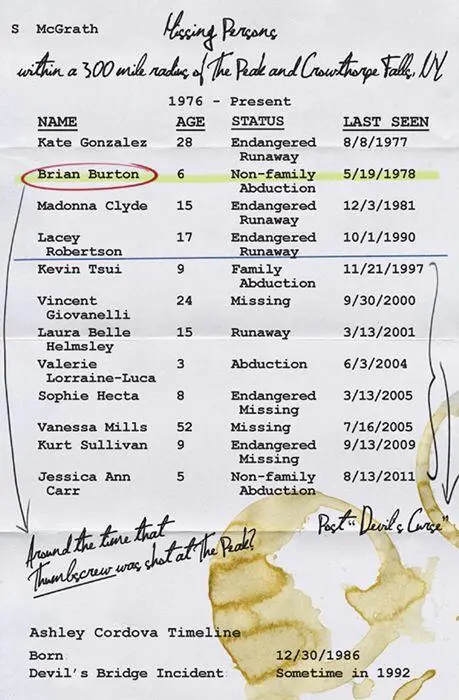 S McGrath
Missing Persons
within a 300 mile radius of The Peak and Crowthorpe Falls, NY
1976 - Present
NAME AGE STATUS LAST SEEN
Kate Gonzalez 28 Endangered 8/8/1977
Runaway
Brian Burton 6 Non-family 5/19/1978
Abduction
Madonna Clyde 15 Endangered 12/3/1981
Runaway
Lacey 17 Endangered 10/1/1990
Robertson Runaway
Kevin Tsui 9 Family 11/21/1997
Abduction
Vincent 24 Missing 9/30/2000
Giovanelli
Laura Belle 15 Runaway 3/13/2001
Helmsley
Valerie 3 Abduction 6/3/2004
Lorraine-Luca
Sophie Hecta 8 Endangered 3/13/2005
Missing
Vanessa Mills 52 Missing 7/16/2005
Kurt Sullivan 9 Endangered 9/13/2009
Missing
Jessica Ann 5 Non-family 8/13/2011
Carr Abduction
"Post "Devil's Curse"
Around the time that
Thumbscrew was shot at The Peak?
Ashley Cordova Timeline
Born 12/30/1986
Devil's Bridge Incident Sometime in 1992